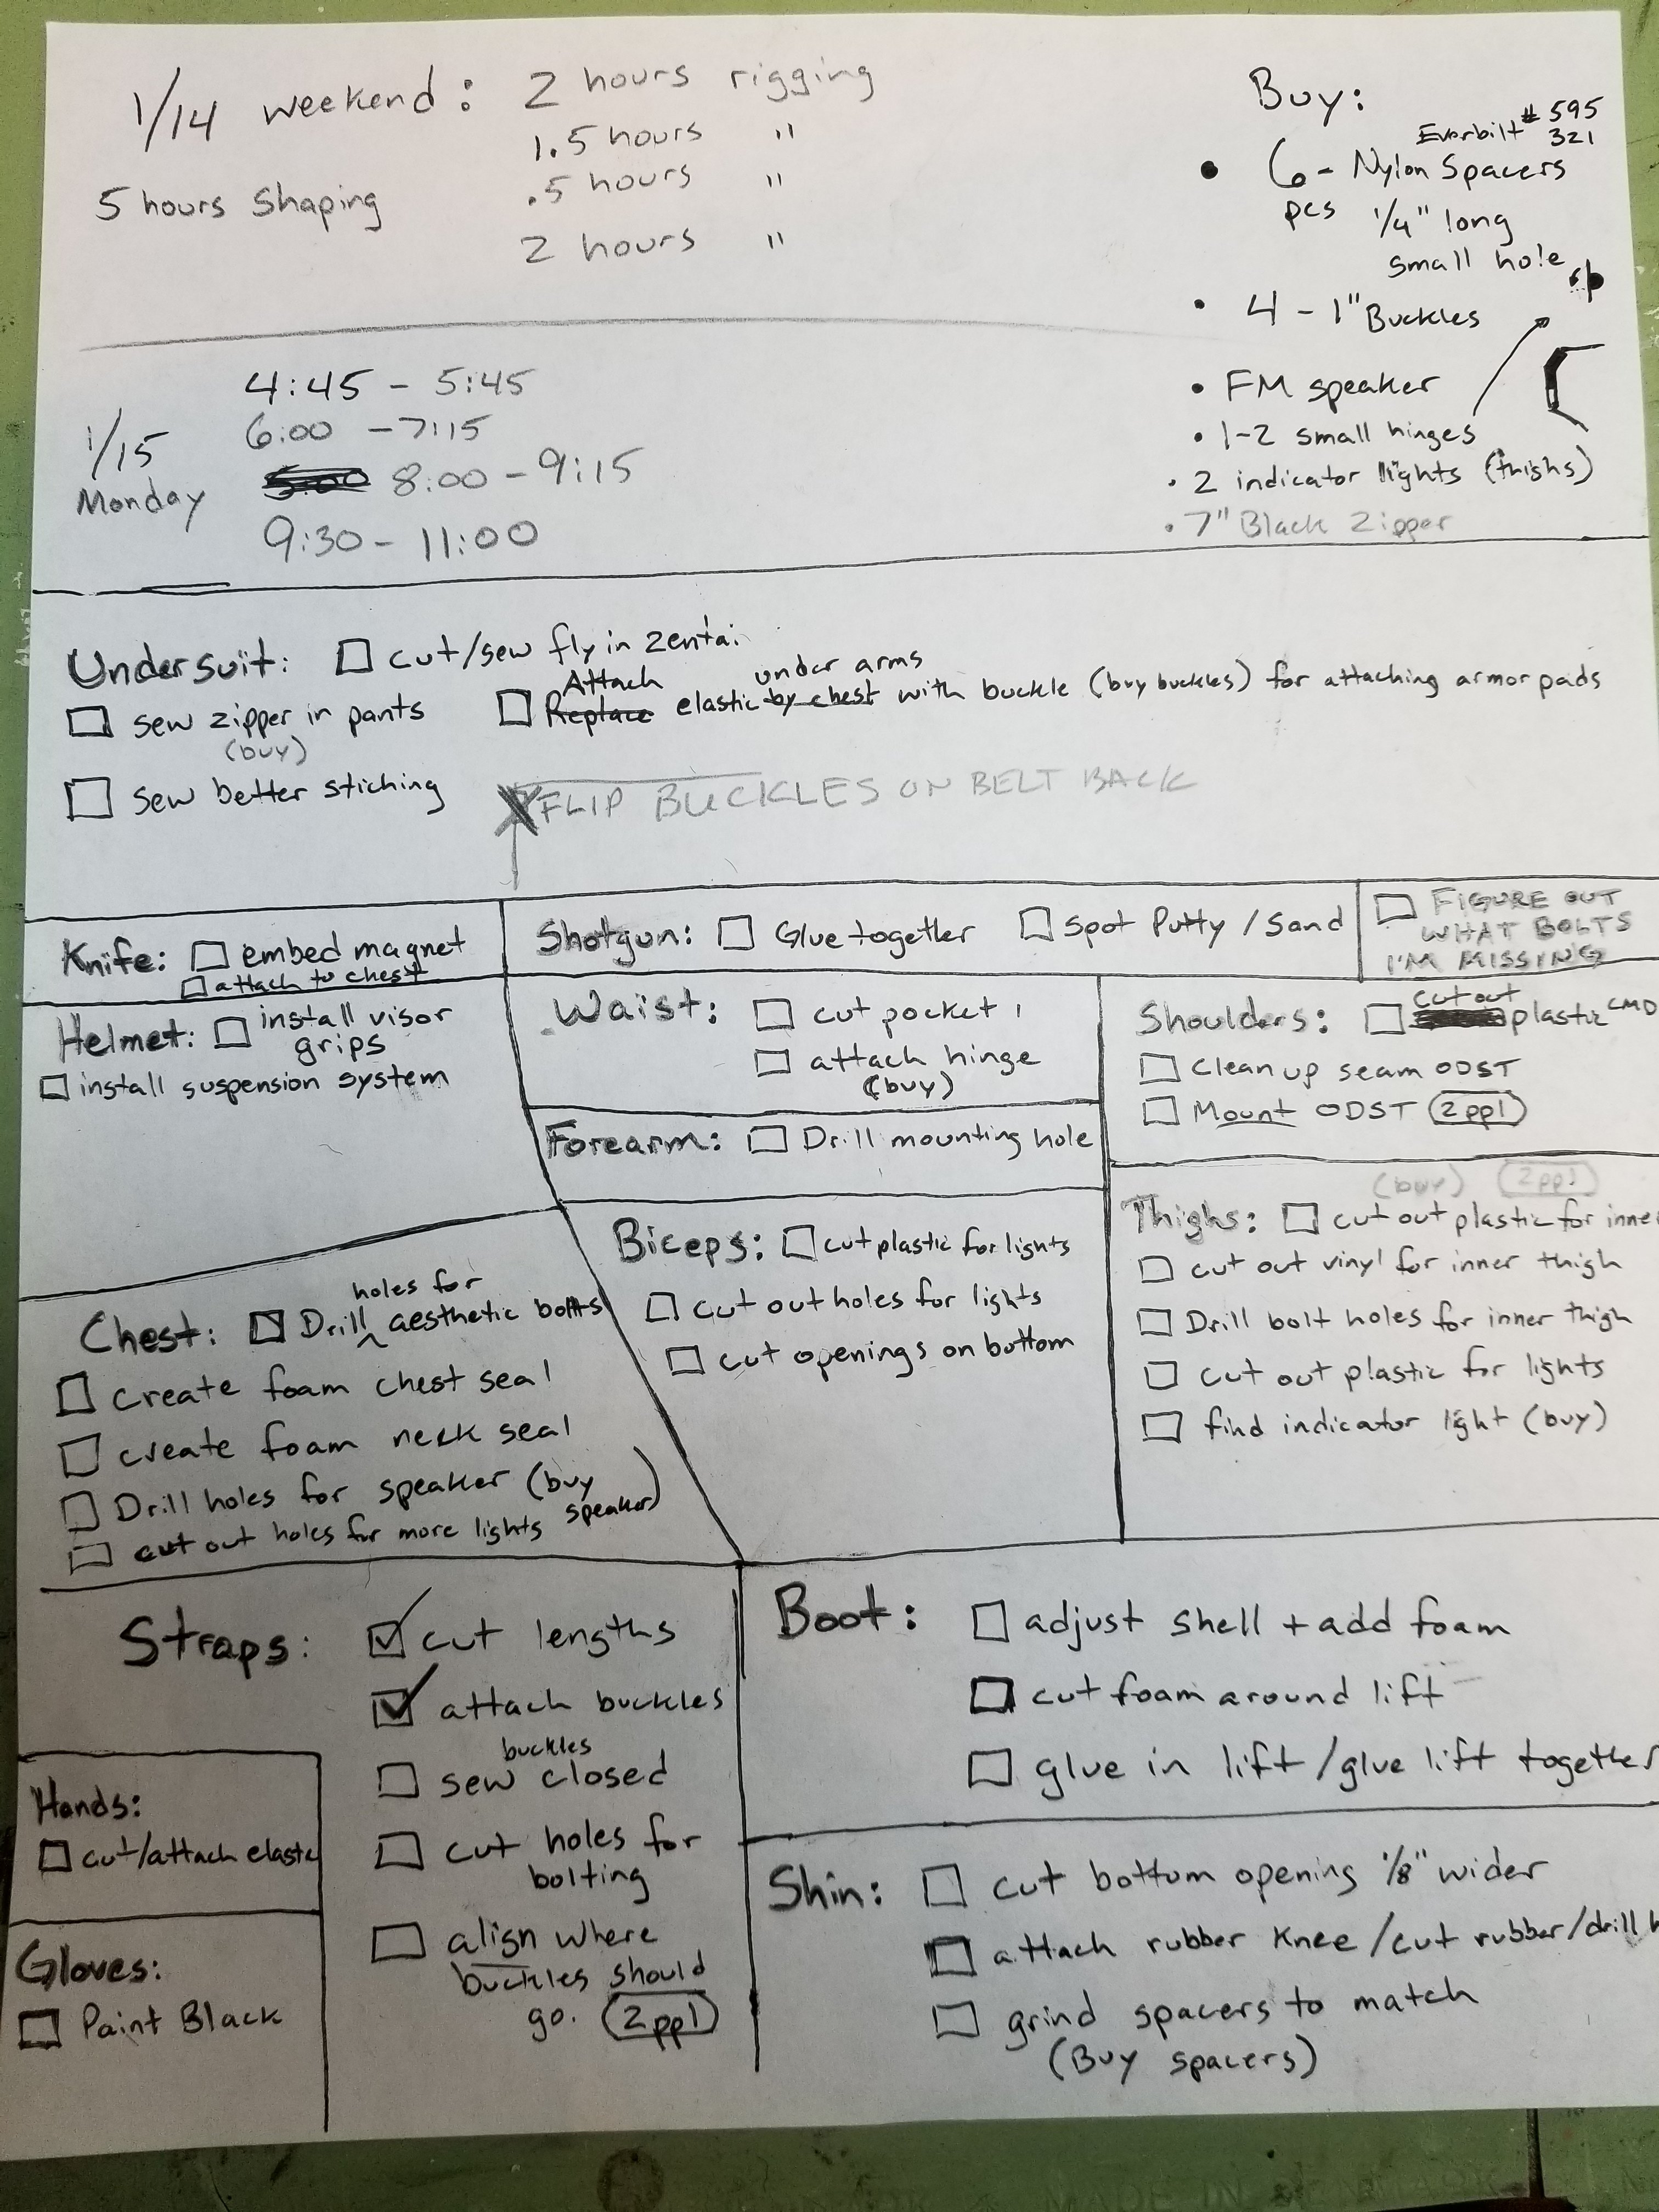 1/14 weekend: 2 hours rigging
1.5 hours "
5 hours Shaping .5 hours "
2 hours "
Buy:
Everbilt # 595
321
• 6 - Nylon Spacers
pcs 1/4" long
small hole
• 4 - 1" Buckles
• FM speaker
• 1-2 small hinges
• 2 indicator lights (thighs)
• 7" Black Zipper
1/15
Monday
4:45 - 5:45
6:00 - 7:15
5:00 8:00 - 9:15
9:30 - 11:00
Undersuit: cut/sew fly in zentai
sew zipper in pants
(buy)
sew better stiching
Attach under arms
Replace elastic by chest with buckle (buy buckles) for attaching armor pads
FLIP BUCKLES ON BELT BACK
Knife: embed magnet
attach to chest
Shotgun: Glue together Spot Putty / Sand
FIGURE OUT
WHAT BOLTS
I'M MISSING
Helmet: install visor
grips
install suspension system
Waist: cut pocket
attach hinge
(buy)
Shoulders: cut out plastic CMD
Clean up seam ODST
Mount ODST (2 ppl)
Forearm: Drill mounting hole
Biceps: cut plastic for lights
cut out holes for lights
cut openings on bottom
(buy) (2 ppl)
Thighs: cut out plastic for inner
cut out vinyl for inner thigh
Drill bolt holes for inner thigh
cut out plastic for lights
find indicator light (buy)
holes for
Chest: Drill ^ aesthetic bolts
create foam chest seal
create foam neck seal
Drill holes for speaker (buy
speaker)
cut out holes for more lights
Straps: cut lengths
attach buckles
buckles
sew closed
cut holes for
bolting
align where
buckles should
go. (2 ppl)
Boot: adjust shell + add foam
cut foam around lift
glue in lift / glue lift together
Hands:
cut/attach elastic
Gloves:
Paint Black
Shin: cut bottom opening 1/8" wider
attach rubber knee / cut rubber / drill
grind spacers to match
(Buy spacers)
MADE IN